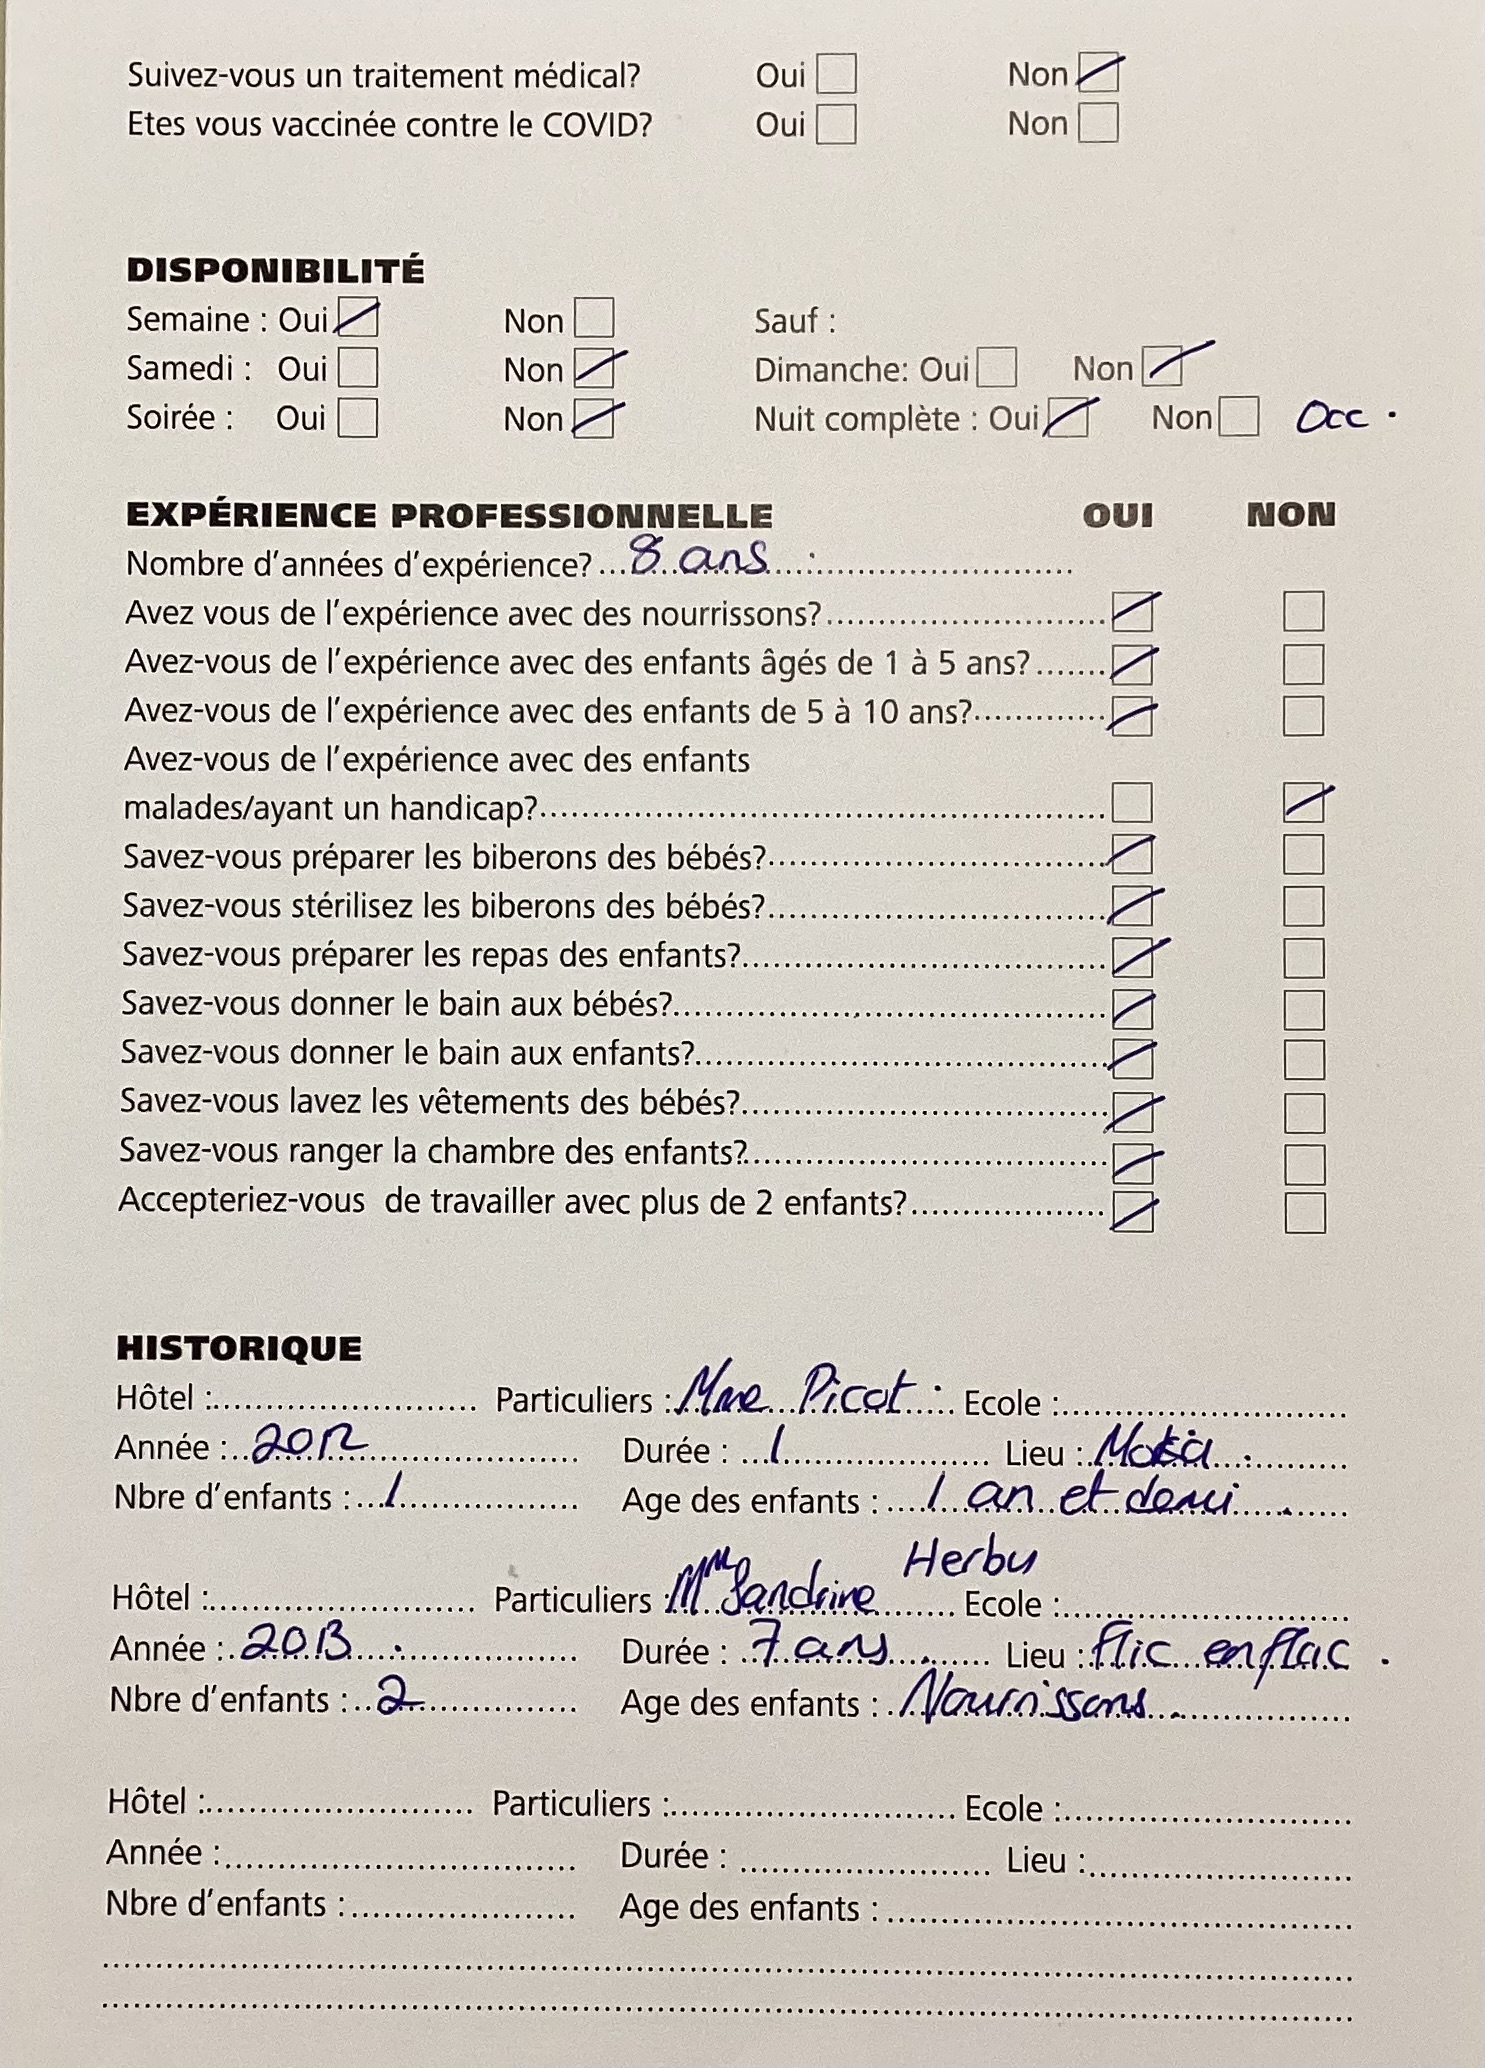 Suivez-vous un traitement médical? Oui Non
Etes vous vaccinée contre le COVID? Oui Non
DISPONIBILITÉ
Semaine : Oui Non Sauf :
Samedi : Oui Non Dimanche: Oui Non
Soirée : Oui Non Nuit complète : Oui Non Occ.
EXPÉRIENCE PROFESSIONNELLE OUI NON
Nombre d'années d'expérience? 8 ans
Avez vous de l'expérience avec des nourrissons?
Avez-vous de l'expérience avec des enfants âgés de 1 à 5 ans?
Avez-vous de l'expérience avec des enfants de 5 à 10 ans?
Avez-vous de l'expérience avec des enfants
malades/ayant un handicap?
Savez-vous préparer les biberons des bébés?
Savez-vous stérilisez les biberons des bébés?
Savez-vous préparer les repas des enfants?
Savez-vous donner le bain aux bébés?
Savez-vous donner le bain aux enfants?
Savez-vous lavez les vêtements des bébés?
Savez-vous ranger la chambre des enfants?
Accepteriez-vous de travailler avec plus de 2 enfants?
HISTORIQUE
Hôtel : Particuliers : Mme Picot Ecole :
Année : 2012 Durée : 1 Lieu : Moka
Nbre d'enfants : 1 Age des enfants : 1 an et demi
Hôtel : Particuliers : Mme Sandrine Ecole :
Année : 2013 Durée : 7 ans Lieu : flic en flac.
Nbre d'enfants : 2 Age des enfants : Nourrissons
Hôtel : Particuliers : Ecole :
Année : Durée : Lieu :
Nbre d'enfants : Age des enfants :